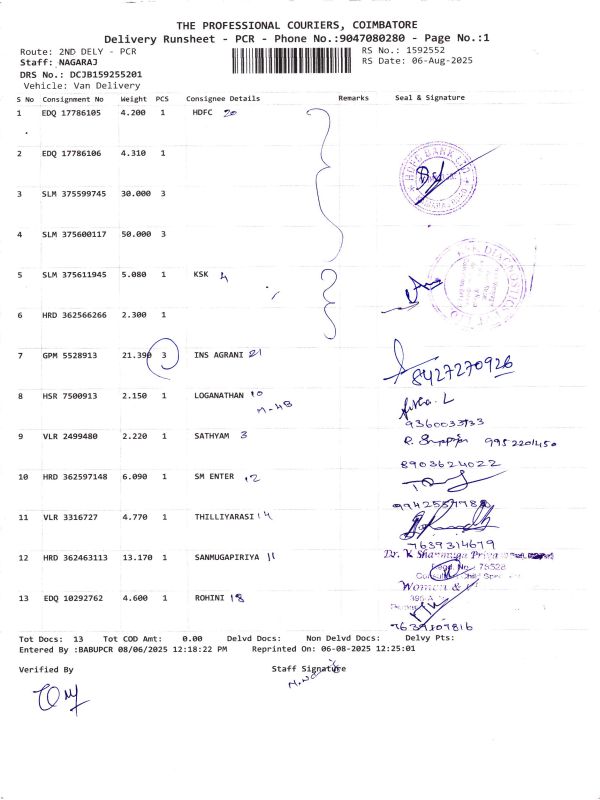 THE PROFESSIONAL COURIERS, COIMBATORE
Delivery Runsheet - PCR - Phone No.:9047080280 - Page No.:1
Route: 2ND DELY - PCR
RS No.: 1592552
Staff: NAGARAJ
RS Date: 06-Aug-2025
DRS No.: DCJB159255201
Vehicle: Van Delivery
S No Consignment No Weight PCS Consignee Details Remarks Seal & Signature
1 EDQ 17786105 4.200 1 HDFC 20
2 EDQ 17786106 4.310 1
3 SLM 375599745 30.000 3
4 SLM 375600117 50.000 3
5 SLM 375611945 5.080 1 KSK 4
6 HRD 362566266 2.300 1
7 GPM 5528913 21.390 3 INS AGRANI 21
8427270926
8 HSR 7500913 2.150 1 LOGANATHAN 10
M-48
9360033733
9 VLR 2499480 2.220 1 SATHYAM 3
9952201450
8903624022
10 HRD 362597148 6.090 1 SM ENTER 12
11 VLR 3316727 4.770 1 THILLIYARASI 14
7639314679
12 HRD 362463113 13.170 1 SANMUGAPIRIYA 11
Dr. K Sharmuga Priya
Regd. No.: 78528
Women &
13 EDQ 10292762 4.600 1 ROHINI 18
7639109816
Tot Docs: 13 Tot COD Amt: 0.00 Delvd Docs: Non Delvd Docs: Delvy Pts:
Entered By :BABUPCR 08/06/2025 12:18:22 PM Reprinted On: 06-08-2025 12:25:01
Verified By Staff Signature